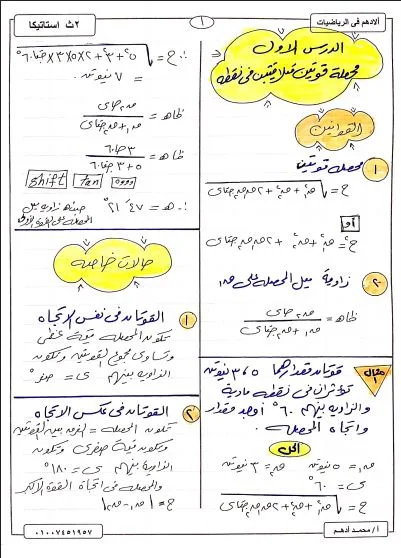 الادهم فى الرياضيات
١
٢ث استاتيكا
الدرس الاول
محصلة قوتين متلاقيتين فى نقطه
القوانين
١ محصله قوتين
ح = √ق₁² + ق₂² + ٢ق₁ق₂حتاى
أو
ح² = ق₁² + ق₂² + ٢ق₁ق₂حتاى
٢ زاوية ميل المحصله على ق₁
ظاهـ = ق₂حاى / ق₁ + ق₂حتاى
مثال ١ قوتان مقدارهما ٣،٥ نيوتن
تؤثران فى نقطه مادية
والزاويه بينهم ٦٠° أوجد مقدار
واتجاه المحصله.
الحل
ق₁ = ٥ نيوتن ق₂ = ٣ نيوتن
ى = ٦٠°
ح = √ق₁² + ق₂² + ٢ق₁ق₂حتاى
∴ ح = √٥² + ٣² + ٢×٥×٣×حتا٦٠°
= ٧ نيوتن
ظاهـ = ق₂حاى / ق₁ + ق₂حتاى
ظاهـ = ٣حا٦٠ / ٥ + ٣حتا٦٠
shift tan
∴ هـ = ٤٧ َ ٢١° حيث هـ زاويه ميل
المحصله على القوة الأولى
حالات خاصه
١ القوتان فى نفس الاتجاه
تكون المحصله قيمة عظمى
وتساوى مجموع القوتين وتكون
الزاويه بينهم ى = صفر°
٢ القوتان فى عكس الاتجاه
تكون المحصله = الفرق بين القوتين
وتكون قيمة صغرى وتكون
الزاوية بينهم ى = ١٨٠°
والمحصله فى اتجاه القوة الأكبر
ح = |ق₁ - ق₂|
أ / محمد أدهم
٠١٠٠٧٤٥١٩٥٧